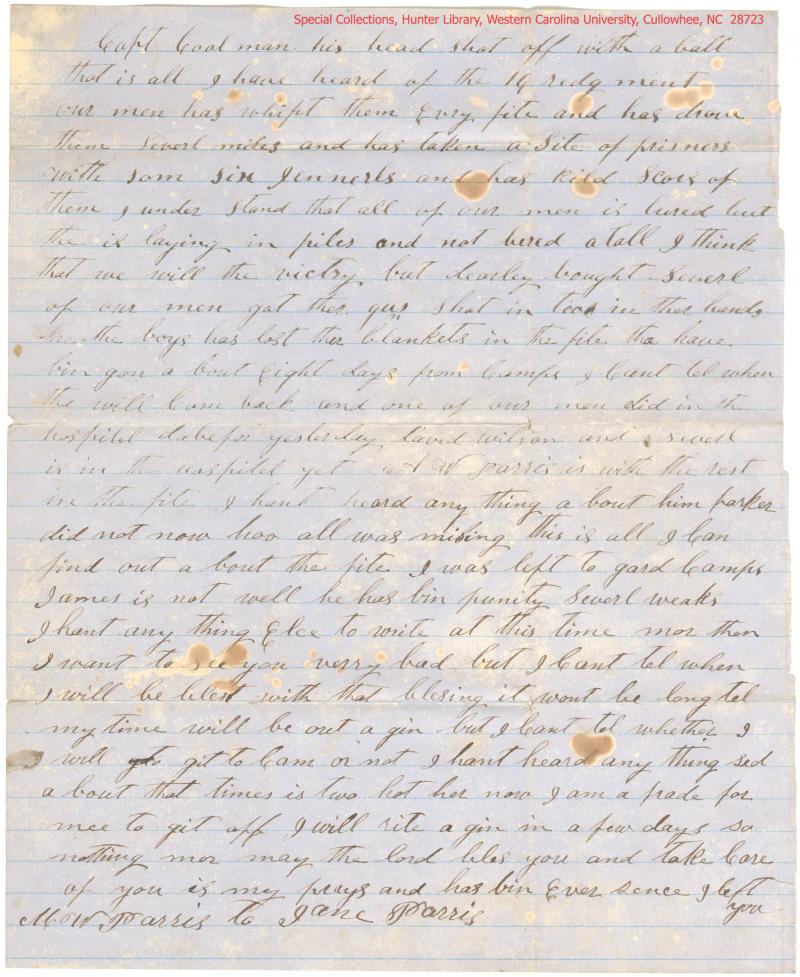 Special Collections, Hunter Library, Western Carolina University, Cullowhee, NC 28723
Capt Coalman his head shot off with a ball
that is all I have heard of the 16 redgment
our men has whipt them Evry fite and has drove
them Severl miles and has taken a Site of prisners
with som six Jennerls and has kild Scors of
them I under stand that all of our men is bured but
the is laying in piles and not bered atall I think
that we will the victry but dearley bought Severl
of our men got ther guns shot in too in ther hands
the boys has lost ther blankets in the fite tha have
bin gon a bout Eight days from Camps I Cant tel when
tha will Com back and one of our men did in the
hospitel dabefor yesterday david wilson and severl
is in the hospitel yet A W Parris is with the rest
in the fite I hant heard any thing a bout him parker
did not now hoo all was mising this is all I Can
find out a bout the fite I was left to gard Camps
James is not well he has bin punity Severl weaks
I hant any thing Elce to write at this time mor then
I want to see you verry bad but I Cant tel when
I will be blest with that blesing it wont be long tel
my time will be out a gin but I Cant tel whether I
will git to Com or not I hant heard any thing sed
a bout that times is two hot her now I am a frade for
mee to git off I will rite a gin in a few days so
nothing mor may the lord bles you and take Care
of you is my prays and has bin Ever sence I left
you
M W Parris to Jane Parris